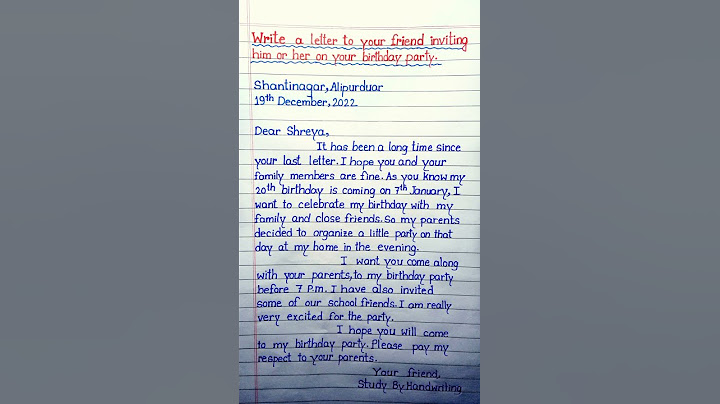 Write a letter to your friend inviting
him or her on your birthday party.
Shantinagar, Alipurduar
19th December, 2022
Dear Shreya,
It has been a long time since
your last letter. I hope you and your
family members are fine. As you know my
20th birthday is coming on 7th January, I
want to celebrate my birthday with my
family and close friends. So my parents
decided to organize a little party on that
day at my home in the evening.
I want you come along
with your parents, to my birthday party
before 7 P.m. I have also invited
some of our school friends. I am really
very excited for the party.
I hope you will come
to my birthday party. Please pay my
respect to your parents.
Your friend,
Study By Handwriting